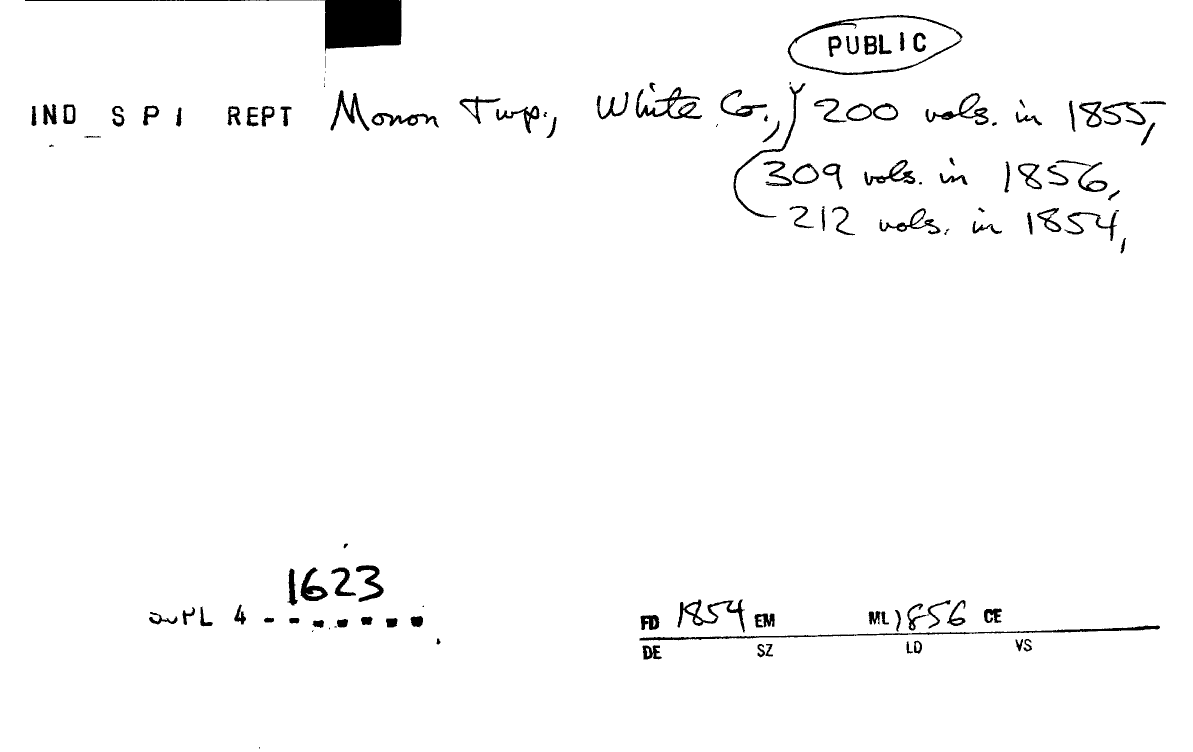 PUBLIC
IND S P I REPT Monon Twp., White Co., 200 vols. in 1855,
309 vols. in 1856,
212 vols. in 1854,
1623
PL 4 - - - - - - -
FD 1854 EM ML 1856 CE
DE SZ LD VS